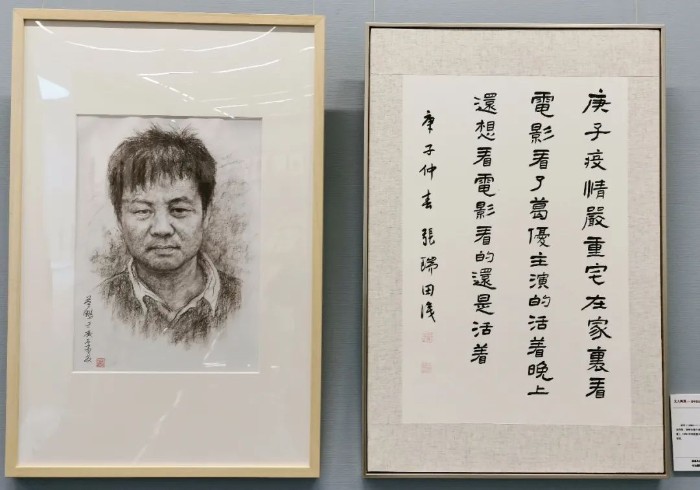 庚子疫情嚴重宅在家裏看
電影看了葛優主演的活着晚上
還想看電影看的還是活着
庚子仲春張瑞田淺